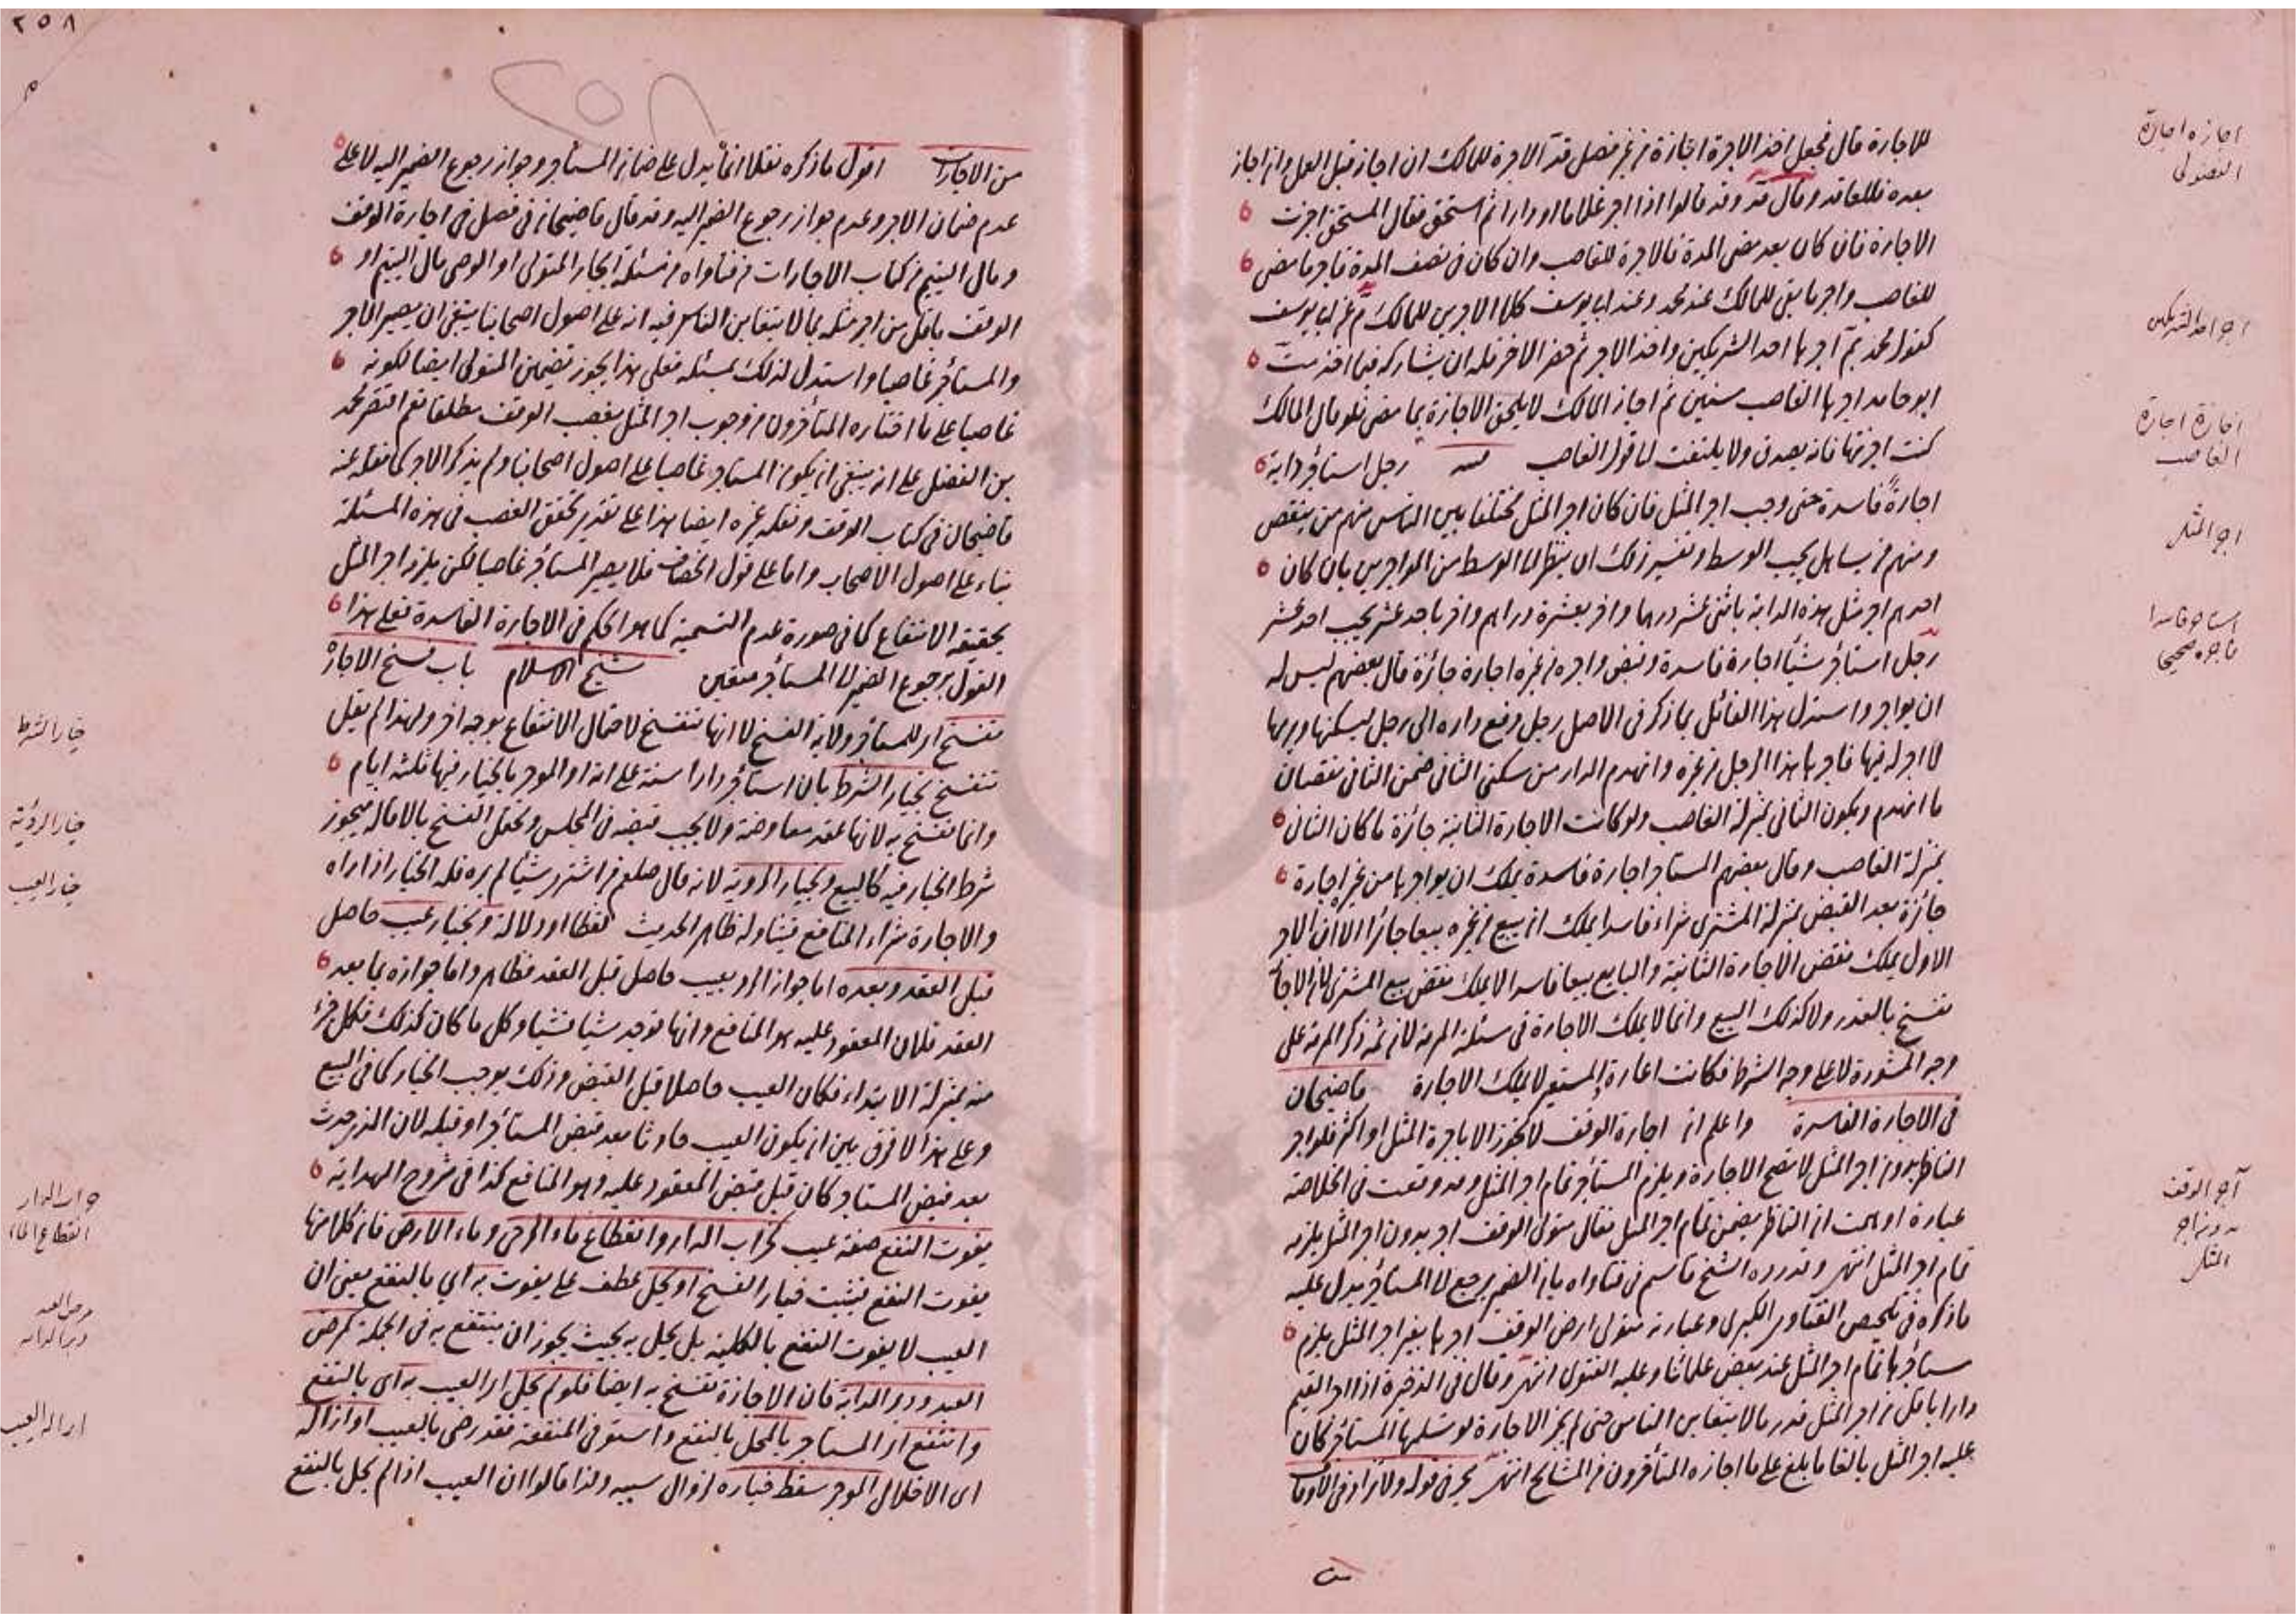 للاجارة قال فجعل اخذ الاجرة اجازة من غير فصل قد الاجرة للمالك ان اجاز قبل العمل وان اجاز
بعده فللعاقد وقال قد وقد قالوا اذا اجر غلاما او دارا ثم استحق فقال المستحق اجزت
الاجارة فان كان بعد مضى المدة فالاجرة للغاصب وان كان فى نصف المدة فاجر ما مضى
للغاصب واجر ما بقى للمالك عند محمد وعند ابى يوسف كلا الاجرين للمالك ثم عن ابى يوسف
كقول محمد آجرها احد الشريكين واخذ الاجر ثم حضر الاخر فله ان يشاركه فيما اخذ
ابو حامد اجرها الغاصب سنين ثم اجاز المالك لا يلحق الاجازة بما مضى فلو قال المالك
كنت اجزتها فانه يصدق ولا يلتفت الى قول الغاصب رجل استأجر دابة
اجارةً فاسدة حتى وجب اجر المثل فان كان اجر المثل مختلفا بين الناس منهم من ينقص
ومنهم من يساهل يجب الوسط وتفسير ذلك ان ينظر الى الوسط من المواجرين بان كان
احدهم اجر مثل هذه الدابة باثنى عشر درهما واخر بعشرة دراهم واخر باحد عشر يجب احد عشر
رجل استأجر شيأ اجارة فاسدة وقبض واجره من غيره اجارة جائزة قال بعضهم ليس له
ان يواجر واستدل هذا القائل بما ذكر فى الاصل رجل دفع داره الى رجل ليسكنها ويرمها
لا اجر له فيها فاجرها هذا الرجل من غيره وانهدم الدار من سكنى الثانى ضمن الثانى نقصان
ما انهدم ويكون الثانى بمنزلة الغاصب ولو كانت الاجارة الثانية جائزة ما كان الثانى
بمنزلة الغاصب وقال بعضهم المستاجر اجارة فاسدة يملك ان يواجرها من غيره اجارة
جائزة بعد القبض بمنزلة المشترى شراء فاسدا يملك ان يبيع من غيره بيعا جائزا الا ان الاجر
الاول يملك نقض الاجارة الثانية والبايع بيعا فاسدا لا يملك نقض بيع المشترى لان الاجارة
تفسخ بالعذر ولا كذلك البيع وانما لا يملك الاجارة فى مسئلة المرمة لان ثمة ذكر المرمة على
وجه المشورة لا على وجه الشرط فكانت اعارة والمستعير لا يملك الاجارة قاضيخان
فى الاجارة الفاسدة واعلم ان اجارة الوقف لا يجوز الا باجرة المثل او اكثر فلو اجر
الناظر بدون اجر المثل لا تصح الاجارة ويلزم المستأجر تمام اجر المثل وقد وقعت فى الخلاصة
عبارة اوهمت ان الناظر يضمن تمام اجر المثل فقال متولى الوقف اجر بدون اجر المثل يلزمه
تمام اجر المثل انتهى وقد رده الشيخ قاسم فى فتاواه بان الضمير يرجع الى المستأجر يدل عليه
ما ذكره فى تلخيص الفتاوى الكبرى وعبارته متولى ارض الوقف اجرها بغير اجر المثل يلزم
مستأجرها تمام اجر المثل عند بعض علمائنا وعليه الفتوى انتهى وقال فى الذخيرة اذا اجر القيم
دارا باقل من اجر المثل قدر ما لا يتغابن الناس حتى لم يجز الاجارة لو تسلمها المستأجر كان
عليه اجر المثل بالغا ما بلغ على ما اجازه المتأخرون من المشايخ انتهى بحر فى قوله ولا تزاد فى الاوقاف
اجازه اجارة
الفضولى
اجر احد الشريكين
اجازة اجارة
الغاصب
اجر المثل
استاجر فاسدا
فاجره صحيحا
آجر الوقف
بدون اجر
المثل
٢٥٨
من الاجارات اقول ما ذكره نقلا انما يدل على ضمان المستأجر وجواز رجوع الضمير اليه لا على
عدم ضمان الاجر وعدم جواز رجوع الضمير اليه وقد قال قاضيخان فى فصل فى اجارة الوقف
ومال اليتيم من كتاب الاجارات من فتاواه من مسئلة ايجار المتولى او الوصى مال اليتيم او
الوقف باقل من اجر مثله بما لا يتغابن الناس فيه انه على اصول اصحابنا ينبغى ان يصير الاجر
والمستأجر غاصبا واستدل لذلك بمسئلة فعلى هذا يجوز تضمين المتولى ايضا لكونه
غاصبا على ما اختاره المتأخرون من وجوب اجر المثل بغصب الوقف مطلقا نعم اقتصر محمد
بن الفضل على انه ينبغى ان يكون المستاجر غاصبا على اصول اصحابنا ولم يذكر الاجر كما نقله عنه
قاضيخان فى كتاب الوقف ونقله غيره ايضا هذا على تقدير تحقق الغصب فى هذه المسئلة
بناء على اصول الاصحاب واما على قول الخصاف فلا يصير المستأجر غاصبا لكن يلزمه اجر المثل
بحقيقة الانتفاع كما فى صورة عدم التسمية كما هو الحكم فى الاجارة الفاسدة فعلى هذا
القول برجوع الضمير الى المستأجر متعين شيخ الاسلام باب فسخ الاجارة
تفسخ اى للمستأجر ولاية الفسخ لا انها تنفسخ لاحتمال الانتفاع بوجه اخر ولهذا لم يقل
تنفسخ بخيار الشرط بان استأجر دارا سنة على انه او الموجر بالخيار فيها ثلثة ايام
وانما تفسخ به لانها عقد معاوضة ولا يجب قبضه فى المجلس ويحتمل الفسخ بالاقالة فيجوز
شرط الخيار فيه كالبيع وبخيار الروية لانه قال صلعم من اشترى شيأ لم يره فله الخيار اذا راه
والاجارة شراء المنافع فيتناوله ظاهر الحديث لفظا او دلالة وبخيار عيب حاصل
قبل العقد وبعده اما جواز الرد بعيب حاصل قبل العقد فظاهر واما جوازه بما بعد
العقد فلان المعقود عليه هو المنافع وانها توجد شيأ فشيأ وكل ما كان كذلك فكل جزء
منه بمنزلة الابتداء فكان العيب حاصلا قبل القبض وذلك يوجب الخيار كما فى البيع
وعلى هذا لا فرق بين ان يكون العيب حادثا بعد قبض المستأجر او قبله لان الذى حدث
بعد قبض المستاجر كان قبل قبض المعقود عليه وهو المنافع كذا فى شروح الهداية
يفوت النفع صفة عيب كخراب الدار وانقطاع ماء الرحى وماء الارض فان كلا منها
يفوت النفع فيثبت خيار الفسخ او يخل عطف على يفوت به اى بالنفع يعنى ان
العيب لا يفوت النفع بالكلية بل يخل به بحيث يجوز ان ينتفع به فى الجملة كمرض
العبد ودبر الدابة فان الاجازة تفسخ به ايضا فلو لم يخل اى العيب به اى بالنفع
وانتفع اى المستاجر بالمخل بالنفع واستوفى المنفعة فقد رضى بالعيب او ازاله
اى الاخلال الموجر سقط خياره لزوال سببه ولذا قالوا ان العيب اذا لم يخل بالنفع
خيار الشرط
خيار الرؤية
خيار العيب
خراب الدار
انقطاع الماء
مرض العبد
دبر الدابة
ازالة العيب